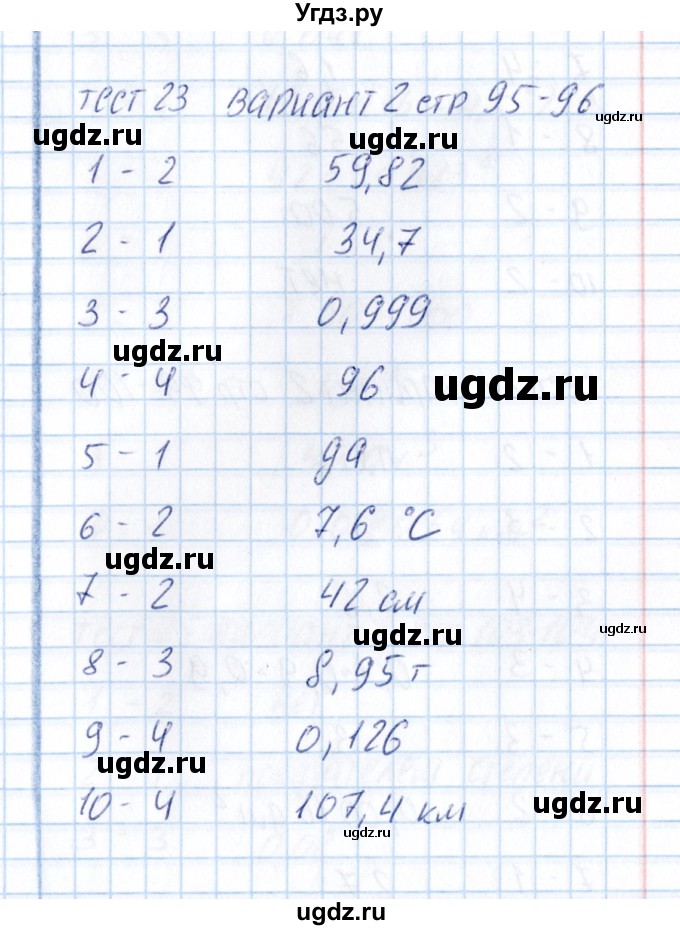 Угдз.ру
тест 23 вариант 2 стр 95-96
ugdz.ru ugdz.ru ugdz.ru
1 - 2 59,82
2 - 1 34,7
3 - 3 0,999
ugdz.ru
4 - 4 96 ugdz.ru
5 - 1 да
6 - 2 7,6 °С
ugdz.ru
7 - 2 42 см
ugdz.ru ugdz.ru
8 - 3 8,95 т
9 - 4 0,126
ugdz.ru
10 - 4 107,4 км ugdz.ru
ugdz.ru
ugdz.ru